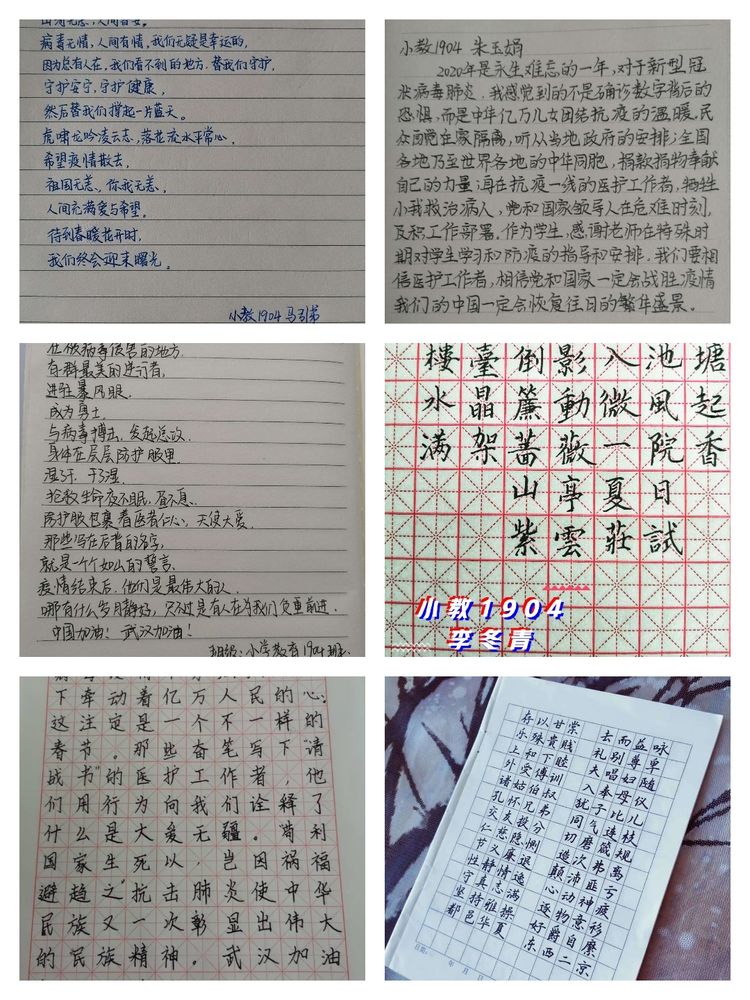 山河无恙,人间皆安。
病毒无情,人间有情,我们无疑是幸运的,
因为总有人在,我们看不到的地方,替我们守护,
守护安宁,守护健康,
然后替我们撑起一片蓝天。
虎啸龙吟凌云志,落花流水平常心,
希望疫情散去,
祖国无恙,你我无恙,
人间充满爱与希望。
待到春暖花开时,
我们终会迎来曙光。
小教1904 马引弟
小教1904 朱玉娟
2020年是永生难忘的一年,对于新型冠
状病毒肺炎,我感觉到的不是确诊数字背后的
恐惧,而是中华亿万儿女团结抗疫的温暖,民
众团结在家隔离,听从当地政府的安排;全国
各地乃至世界各地的中华同胞,捐款捐物奉献
自己的力量;再在抗疫一线的医护工作者,牺牲
小我救治病人,党和国家领导人在危难时刻,
及积工作部署。作为学生,感谢老师在特殊时
期对学生学习和防疫的指导和安排。我们要相
信医护工作者,相信党和国家一定会战胜疫情
我们的中国一定会恢复往日的繁华盛景。
在被病毒侵害的地方,
有群最美的逆行者,
进驻暴风眼,
成为勇士,
与病毒搏击,发起总攻.
身体在层层防护服里,
湿了汗,干了湿,
抢救生命夜不眠,昼不息.
防护服包裹着医者仁心,天使大爱.
那些写在后背的名字,
就是一个个如山的誓言.
疫情结束后,他们是最伟大的人
哪有什么岁月静好,只不过是有人在为我们负重前进.
中国加油!武汉加油!
班级:小学教育1904班
樓臺倒影入池塘
水晶簾動微風起
满架薔薇一院香
山亭夏日
紫雲莊試
小教1904
李冬青
下牵动着亿万人民的心;
这注定是一个不一样的
春节。那些奋笔写下“请
战书”的医护工作者,他
们用行为向我们诠释了
什么是大爱无疆。“苟利
国家生死以,岂因祸福
避趋之”抗击肺炎使中华
民族又一次彰显出伟大
的民族精神。武汉加油
存以甘棠 去而益咏
乐殊贵贱 礼别尊卑
上和下睦 夫唱妇随
外受傅训 入奉母仪
诸姑伯叔 犹子比儿
孔怀兄弟 同气连枝
交友投分 切磨箴规
仁慈隐恻 造次弗离
节义廉退 颠沛匪亏
性静情逸 心动神疲
守真志满 逐物意移
坚持雅操 好爵自縻
都邑华夏 东西二京
日期: 年 月 日